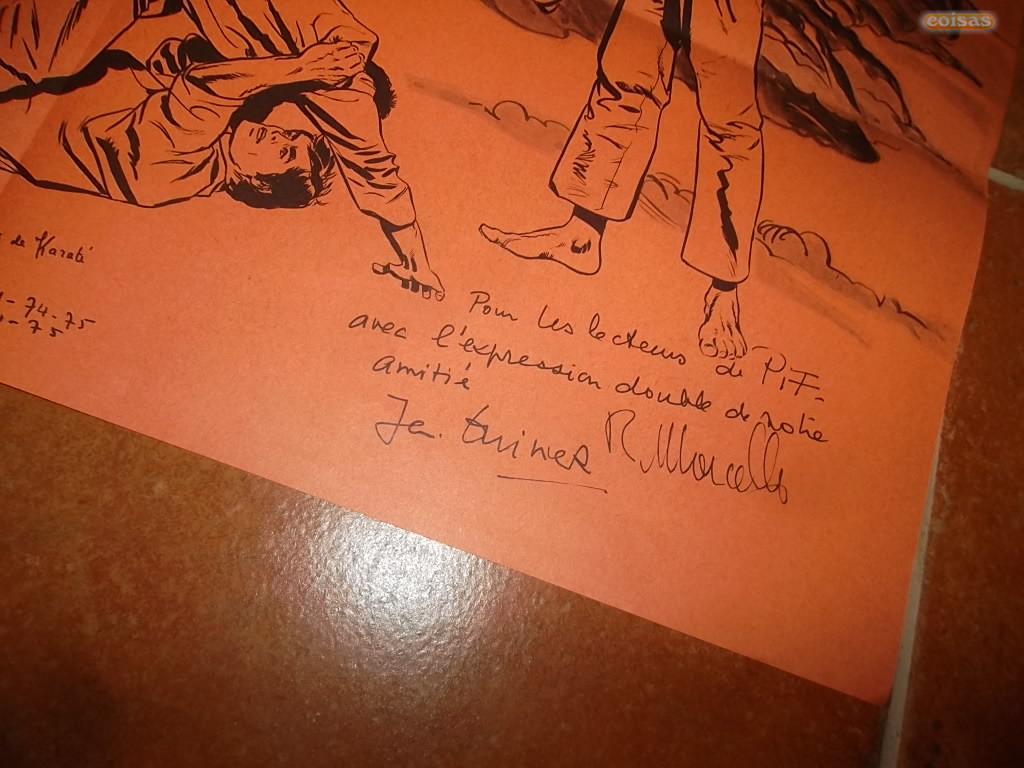 coisas
de Karaté
- 74-75
- 75
Pour les lecteurs de PiF-
avec l'expression double de notre
amitié
R. Marcello